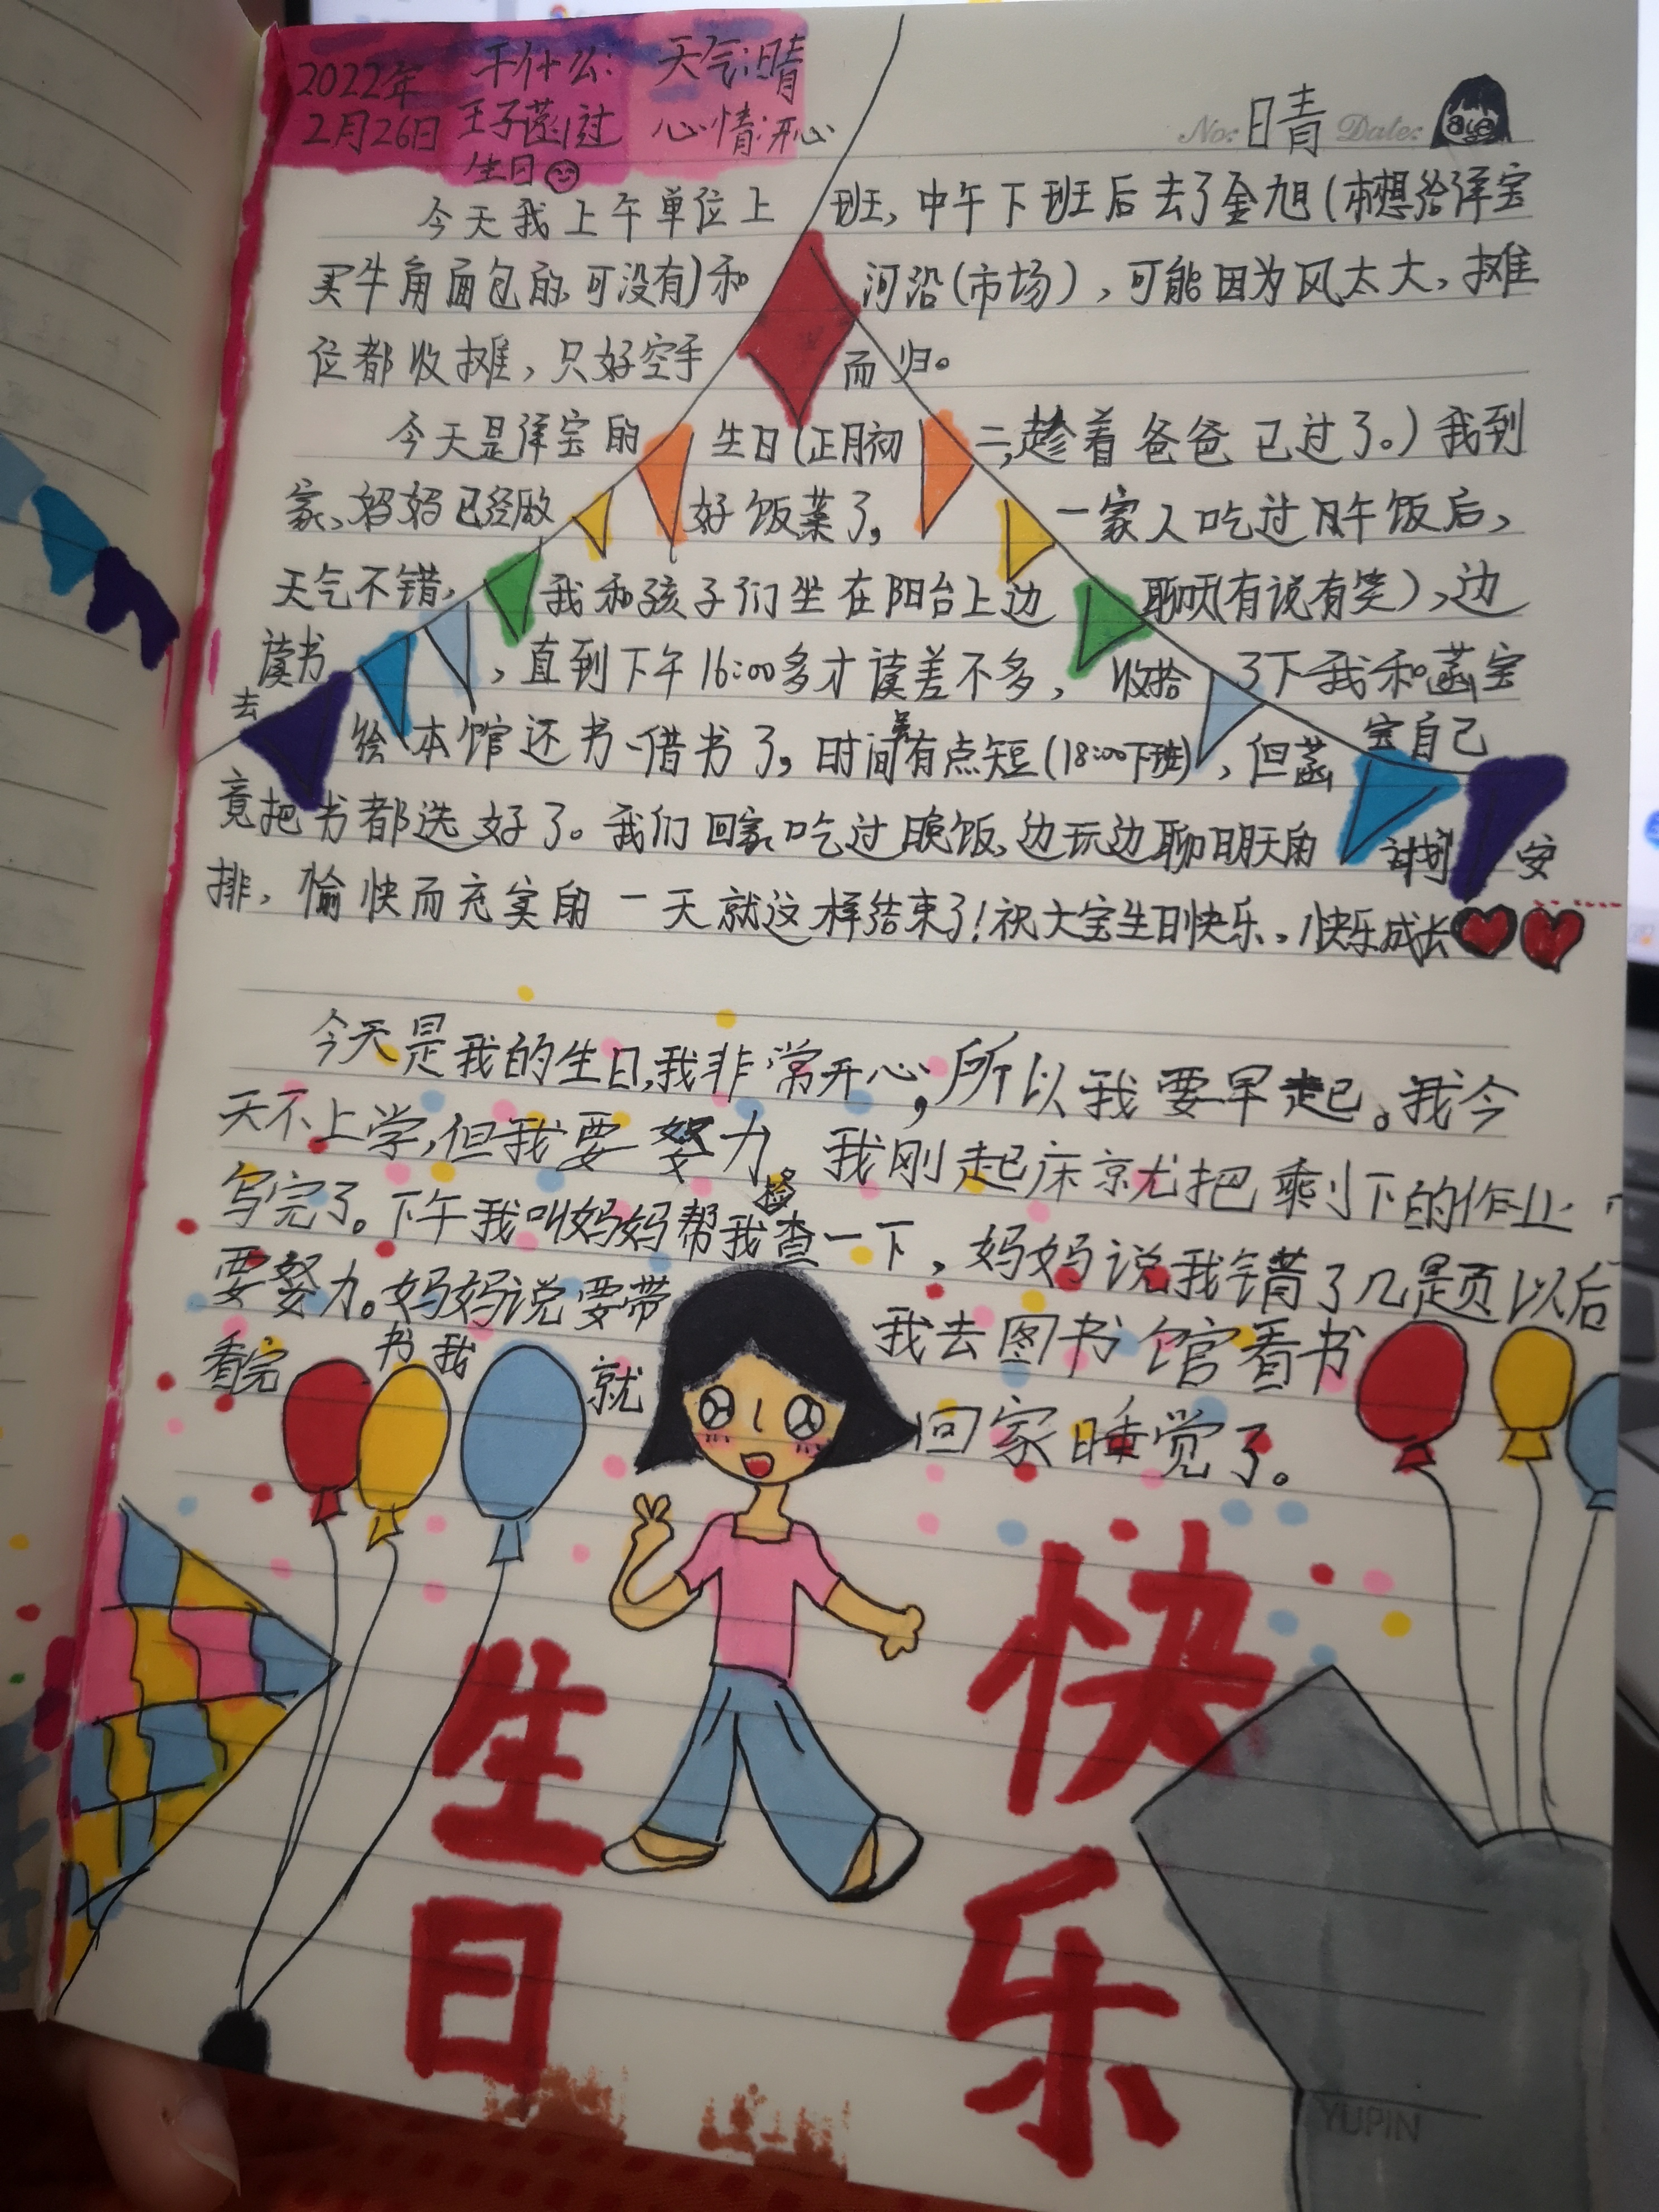 2022年 干什么: 天气:晴
2月26日 王子菡过 心情:开心
生日
No: 日青 Date:
今天我上午单位上班,中午下班后去了金旭(本想给洋宝
买牛角面包的,可没有)和河沿(市场),可能因为风太大,摊
位都收摊,只好空手而归。
今天是洋宝的生日(正月初二,趁着爸爸已过了。)我到
家,妈妈已经做好饭菜了,一家人吃过午饭后,
天气不错,我和孩子们坐在阳台上边聊天(有说有笑),边
读书,直到下午16:00多才读差不多,收拾了下我和菡宝
去绘本馆还书、借书了,时间虽有点短(18:00下班),但菡宝自己
竟把书都选好了。我们回家吃过晚饭,边玩边聊明天的计划安
排,愉快而充实的一天就这样结束了!祝大宝生日快乐,快乐成长
今天是我的生日,我非常开心,所以我要早起。我今
天不上学,但我要努力。我刚起床就把剩下的作业
写完了。下午我叫妈妈帮我检查一下,妈妈说我错了几题以后
要努力。妈妈说要带我去图书馆看书
看完书我就回家睡觉了。
生日
快乐
YUPIN